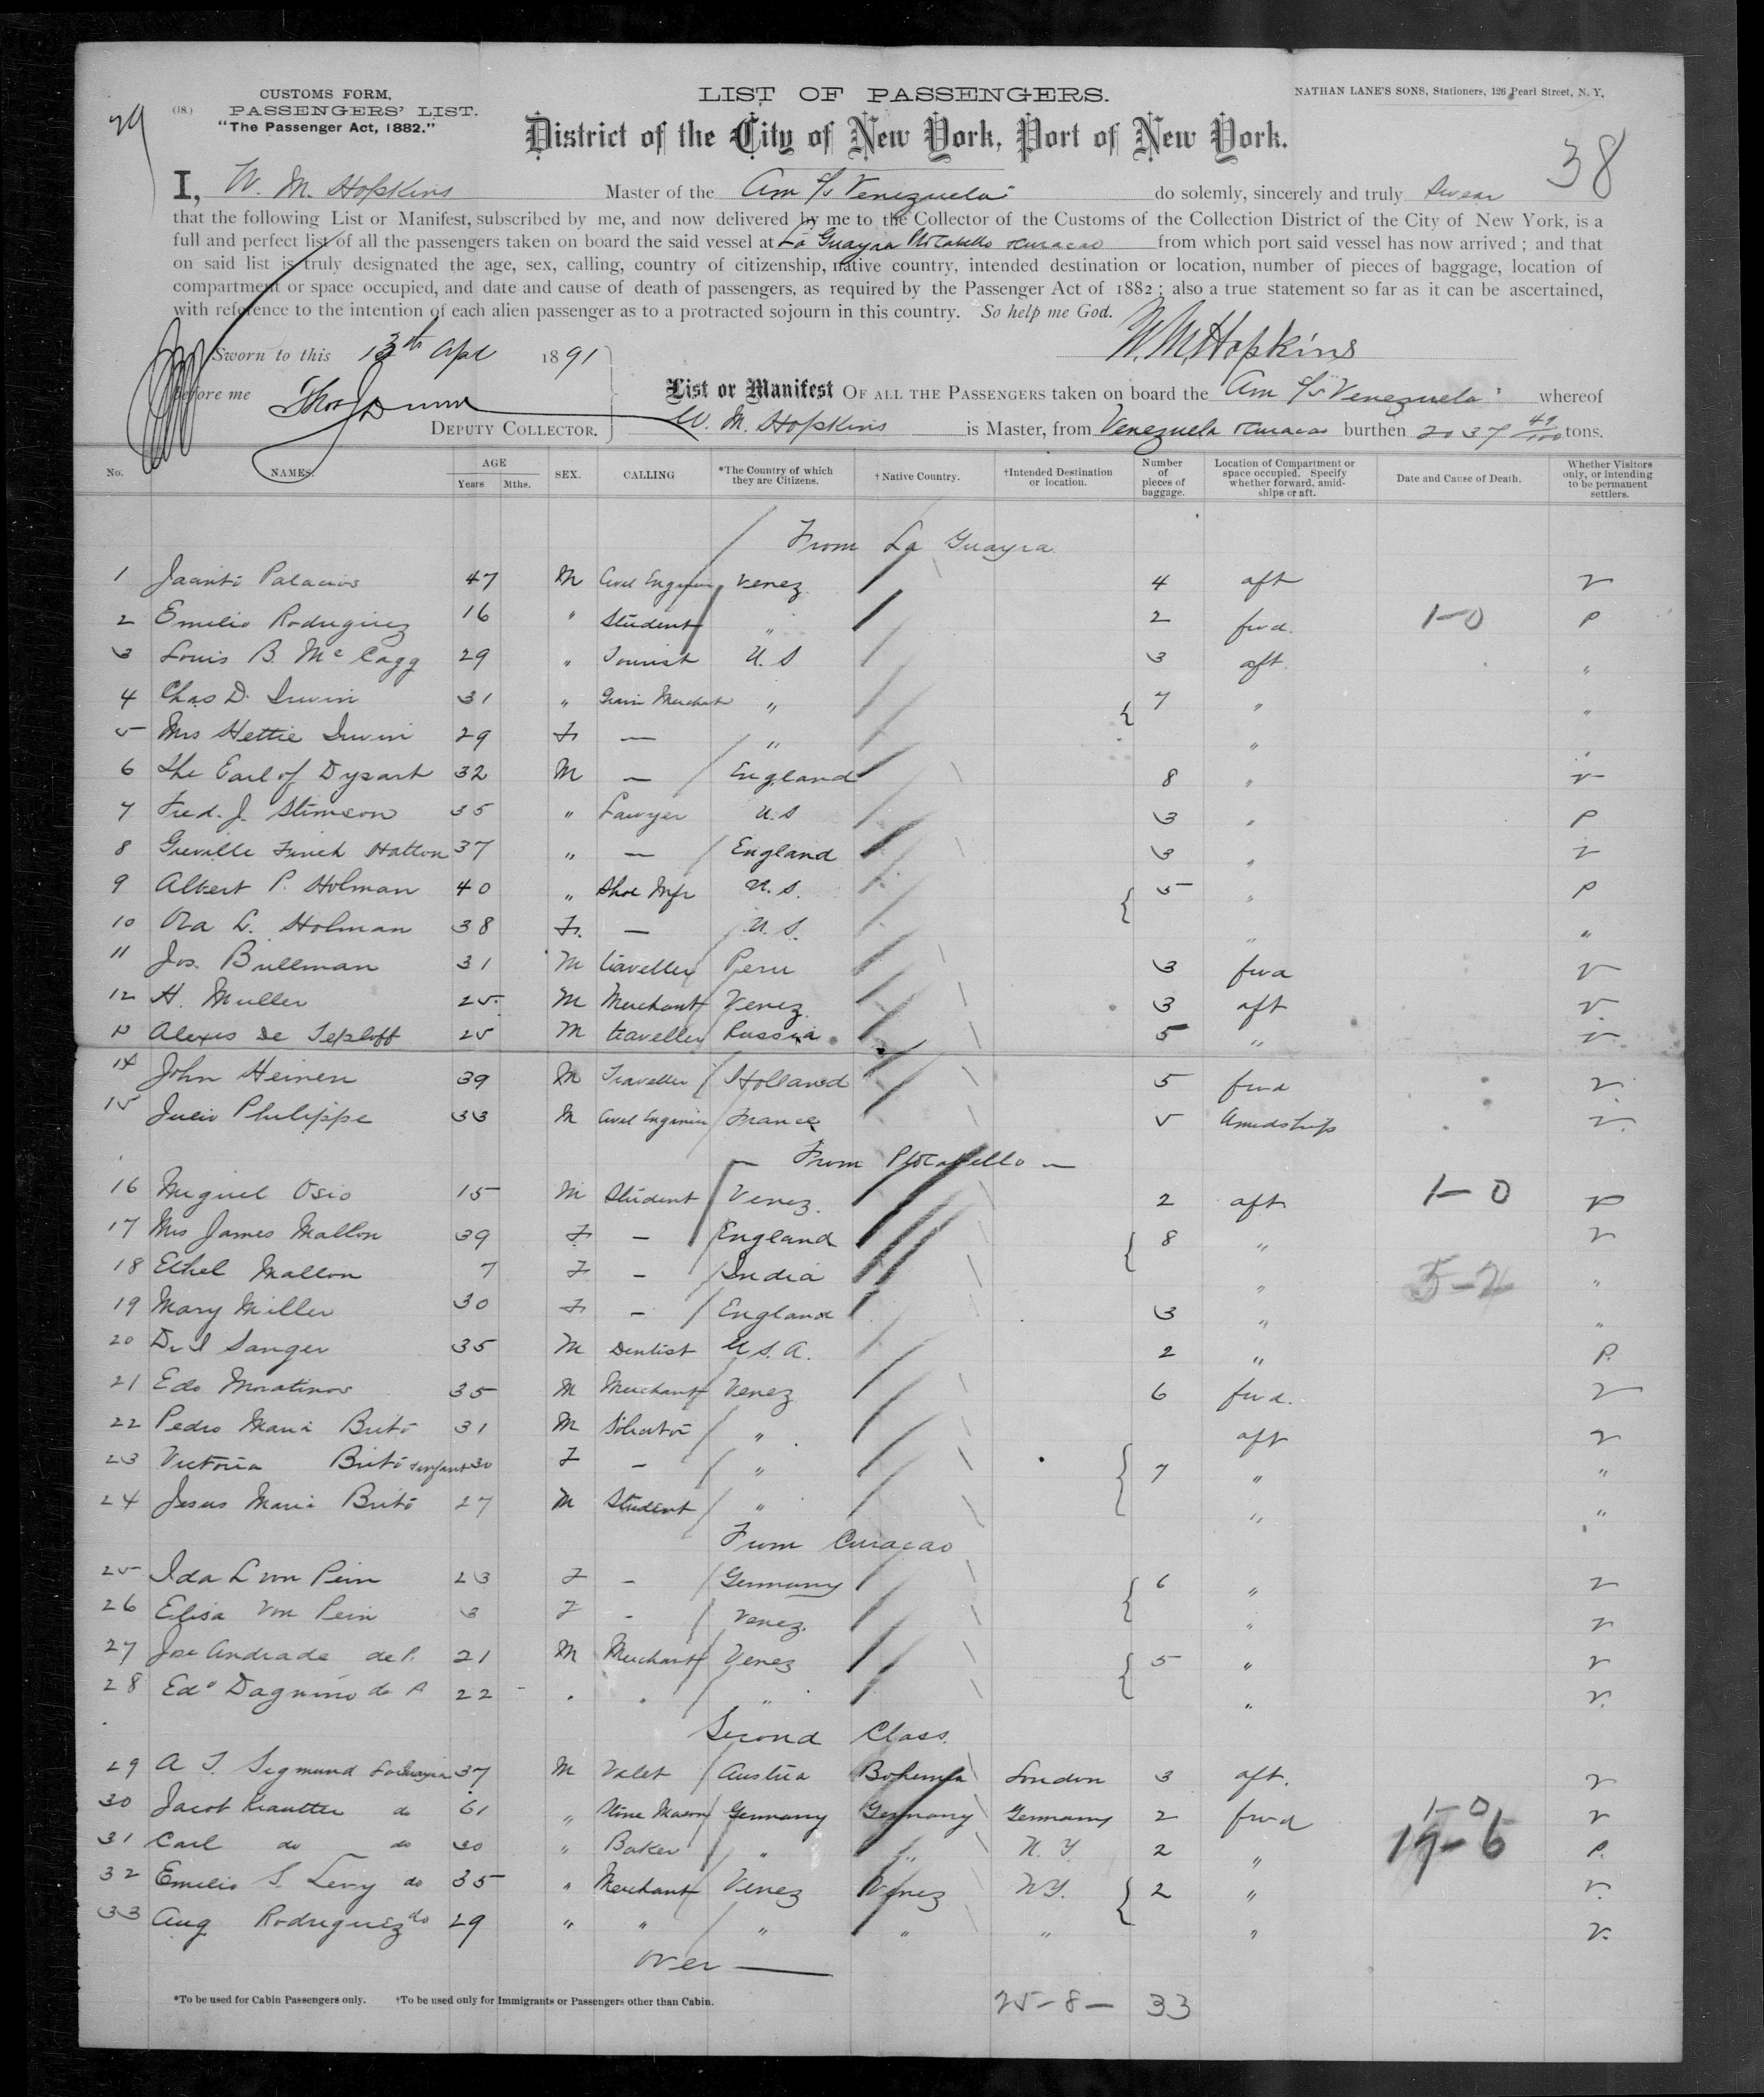 29
(18.)
CUSTOMS FORM.
PASSENGERS' LIST.
"The Passenger Act, 1882."
LIST OF PASSENGERS.
NATHAN LANE'S SONS, Stationers, 126 Pearl Street, N. Y.
District of the City of New York, Port of New York.
38
I, W. M. Hopkins Master of the Am S/S "Venezuela" do solemnly, sincerely and truly swear
that the following List or Manifest, subscribed by me, and now delivered by me to the Collector of the Customs of the Collection District of the City of New York, is a
full and perfect list of all the passengers taken on board the said vessel at La Guayra Pto Cabello & Curacao from which port said vessel has now arrived; and that
on said list is truly designated the age, sex, calling, country of citizenship, native country, intended destination or location, number of pieces of baggage, location of
compartment or space occupied, and date and cause of death of passengers, as required by the Passenger Act of 1882; also a true statement so far as it can be ascertained,
with reference to the intention of each alien passenger as to a protracted sojourn in this country. So help me God.
W. M. Hopkins
Sworn to this 13th Apl 1891
before me Thos J Dunn
DEPUTY COLLECTOR.
List or Manifest OF ALL THE PASSENGERS taken on board the Am S/S "Venezuela" whereof
W. M. Hopkins is Master, from Venezuela & Curacao burthen 2037 49/100 tons.
No. NAMES. AGE Years Mths. SEX. CALLING *The Country of which they are Citizens. †Native Country. †Intended Destination or location. Number of pieces of baggage. Location of Compartment or space occupied. Specify whether forward, amidships or aft. Date and Cause of Death. Whether Visitors only, or intending to be permanent settlers.
From La Guayra
1 Jacinto Palacios 47 M Civil Engineer Venez 4 aft v
2 Emilio Rodriguez 16 " Student " 2 fwd. 1-0 P
3 Louis B. McCagg 29 " Tourist U.S 3 aft. "
4 Chas D. Irwin 31 " Grain Merchat " { 7 " "
5 Mrs Hettie Irwin 29 F — " " "
6 The Earl of Dysart 32 M — England 8 " v
7 Fred. J. Stimson 35 " Lawyer U.S 3 " P
8 Greville Finch Hatton 37 " — England 3 " v
9 Albert P. Holman 40 " Shoe Mfr U.S. { 5 " P
10 Ora L. Holman 38 F. — U.S. " "
11 Jos. Bullman 31 M traveller Peru 3 fwd v
12 H. Muller 25 M Merchant Venez. 3 aft v.
13 Alexis De Teploff 25 M traveller Russia 5 " v
14 John Heinen 39 M Traveller Holland 5 fwd v
15 Julio Philippe 33 M Civil Enginier France 5 Amidships v.
— From Pto Cabello —
16 Miguel Osio 15 M Student Venez. 2 aft 1-0 P
17 Mrs James Mallon 39 F — England { 8 " v
18 Ethel Mallon 7 F — India " 5-2 "
19 Mary Miller 30 F — England 3 " "
20 Dr I Sanger 35 M Dentist U.S.A. 2 " P.
21 Edo Moratinos 35 M Merchant Venez 6 fwd. v
22 Pedro Maria Brito 31 M Solicitor " aft v
23 Victoria Brito & infant 30 F — " { 7 " "
24 Jesus Maria Brito 27 M Student " " "
From Curaçao
25 Ida L von Pein 23 F — Germany { 6 " v
26 Elisa von Pein 3 F — Venez. " v
27 Jose Andrade de P. 21 M Merchant Venez { 5 " v
28 Edo Dagnino de A 22 " " " " v.
Second Class.
29 A T. Sigmund La Guayra 37 M Valet Austria Bohemia London 3 aft. v
30 Jacob Krautter do 61 " Stone Mason Germany Germany Germany 2 fwd 1-0 v
31 Carl do do 30 " Baker " " N.Y. 2 " 19-6 P.
32 Emilio S. Levy do 35 " Merchant Venez Venez N.Y. { 2 " v.
33 Aug Rodriguez do 29 " " " " " " v.
over —
*To be used for Cabin Passengers only. †To be used only for Immigrants or Passengers other than Cabin.
25-8- 33